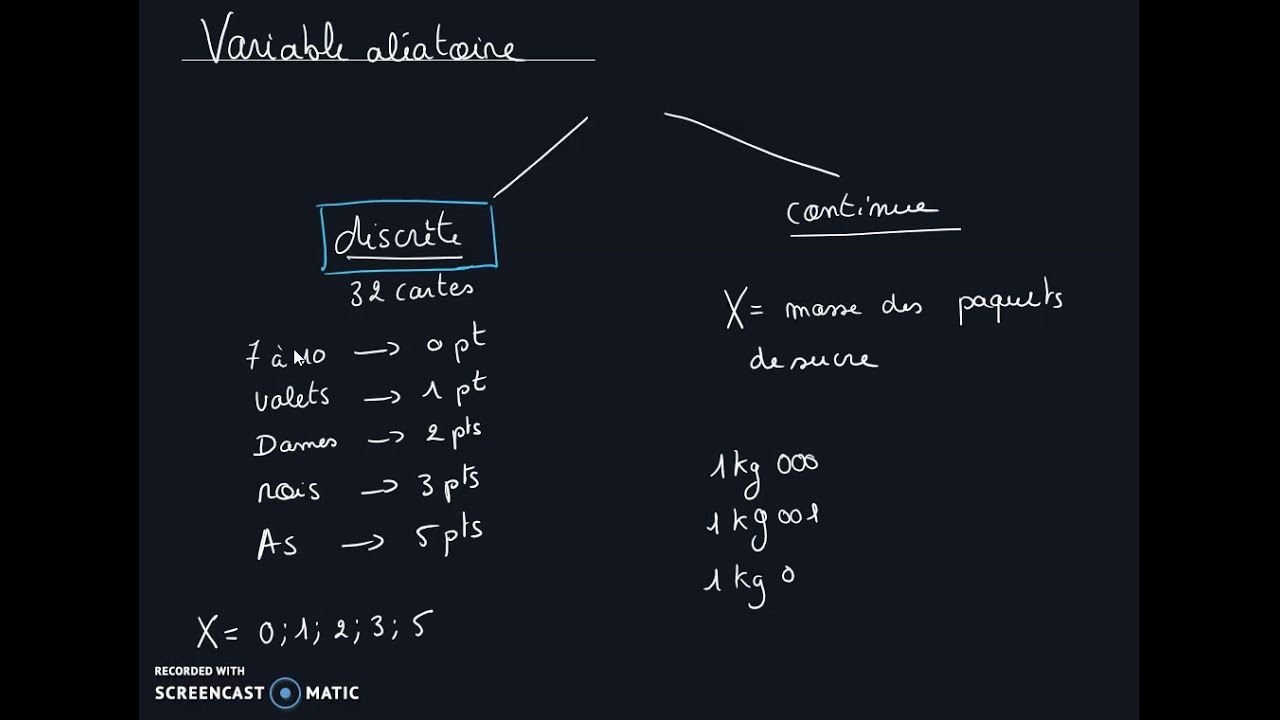 Variable aléatoire
discrète
32 cartes
7 à 10 → 0 pt
valets → 1 pt
Dames → 2 pts
rois → 3 pts
As → 5 pts
X = 0 ; 1 ; 2 ; 3 ; 5
continue
X = masse des paquets
de sucre
1 kg 000
1 kg 001
1 kg 0
RECORDED WITH
SCREENCAST MATIC